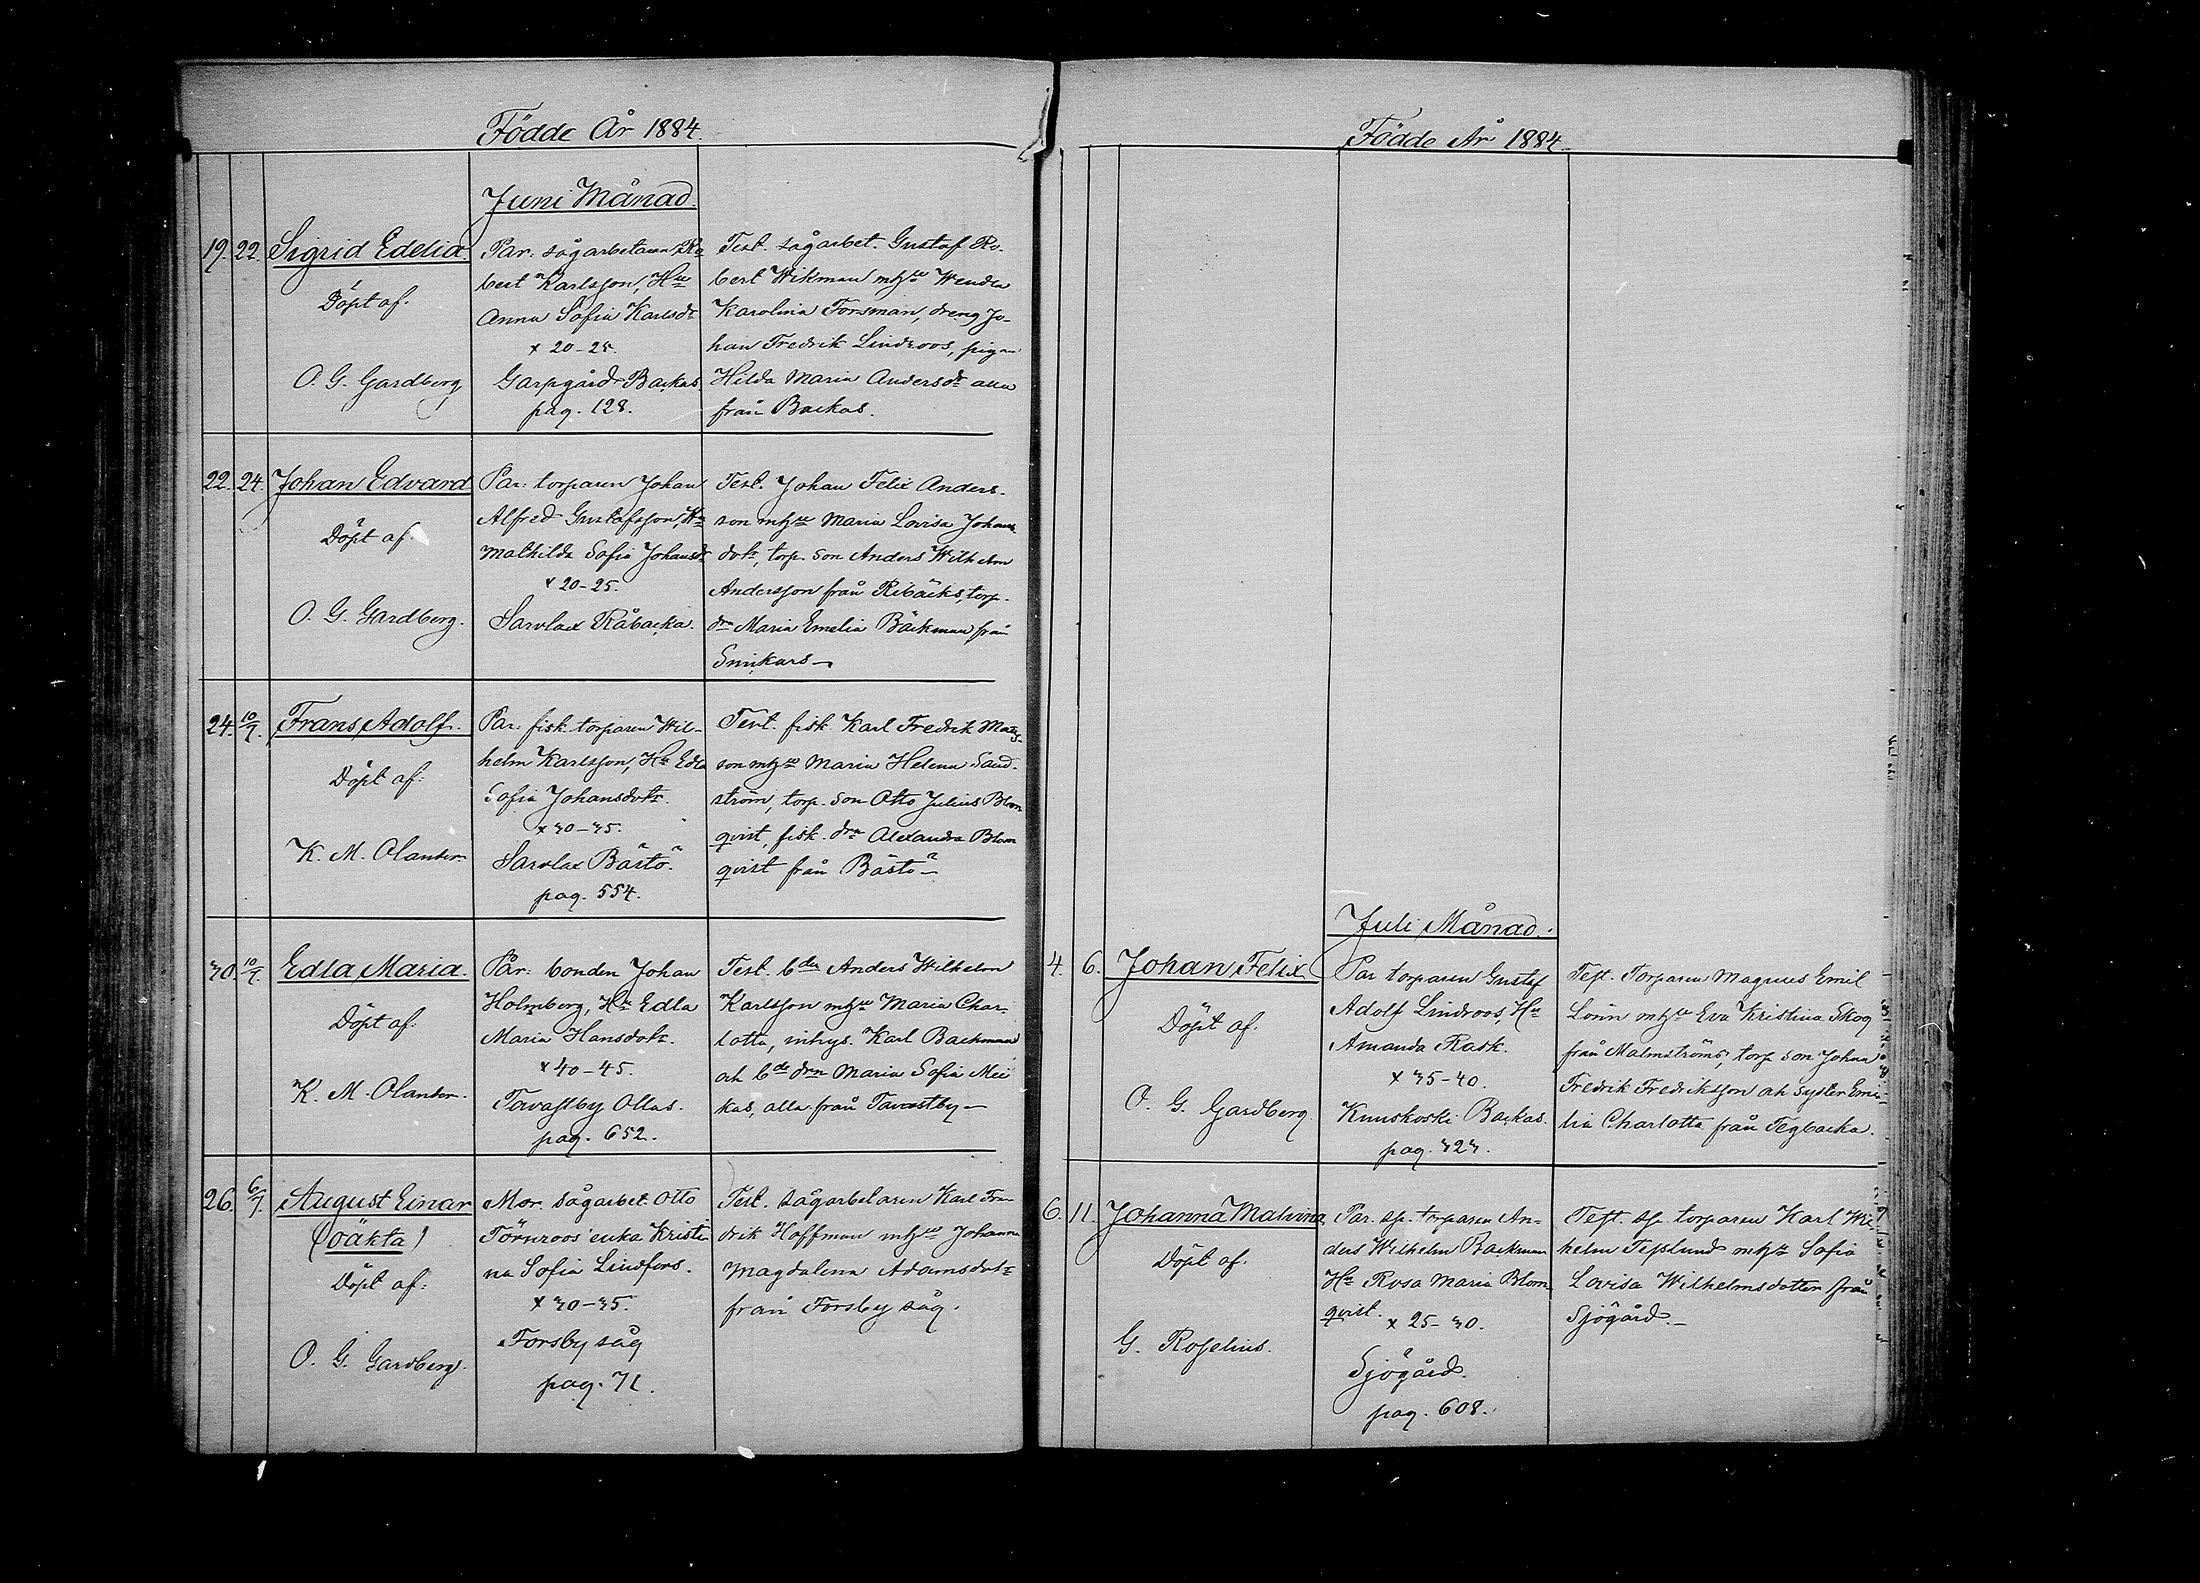 Födde År 1884.
Juni Månad.
19. 22. Sigrid Edelia
Döpt af.
O. G. Gardberg
Par: sågarbetaren Ro
bert Karlsson, Hu
Anna Sofia Karlsdr
x 20-25.
Garpgård Backas
pag. 128.
Test. sågarbet. Gustaf Ro-
bert Wikman m hu Wendla
Karolina Forsman, dreng Jo-
han Fredrik Lindroos, pigan
Hilda Maria Andersdr alla
från Backas.
22. 24. Johan Edvard
Döpt af
O. G. Gardberg.
Par: torparen Johan
Alfred Gustafsson, Hu
Mathilda Sofia Johansdr
x 20-25.
Sarvlax Råbacka.
Test. Johan Felix Anders-
son m hu Maria Lovisa Johans
dotr, torp. son Anders Wilhelm
Andersson från Ribäcks, torp.
drn Maria Emelia Bäckman från
24. 10/7. Frans Adolf.
Döpt af:
K. M. Olander
Par: fisk. torparen Wil-
helm Karlsson, Hu Edla
Sofia Johansdotr.
x 30-35.
Sarvlax Bästö.
pag. 554.
Test. fisk. Karl Fredrik Mats-
son m hu Maria Helena Sand-
ström, torp. son Otto Julius Blom
qvist, fisk. drn Alexandra Blom
qvist från Bästö-
30. 10/7. Edla Maria.
Döpt af:
K. M. Olander.
Par: bonden Johan
Holmberg, Hu Edla
Maria Hansdotr.
x 40-45.
Tavastby Ollas.
pag. 652.
Test. bden Anders Wilhelm
Karlsson m hu Maria Char-
lotta, inhys. Karl Backman
och bde drn Maria Sofia Mei
kas, alla från Tavastby-
26. 6/7. August Einar
(oäkta)
Döpt af:
O. G. Gardberg.
Mor. sågarbet. Otto
Törnroos' enka Kristi
na Sofia Lindfors.
x 30-35.
Forsby såg
pag. 71.
Test. sågarbetaren Karl Fre
drik Hoffman m hu Johanna
Magdalena Adamsdotr
från Forsby såg.
Födde År 1884.
Juli Månad.
4. 6. Johan Felix
Döpt af.
O. G. Gardberg
Par torparen Gustaf
Adolf Lindroos, Hu
Amanda Rask.
x 35-40.
Kuuskoski Backas.
pag. 323.
Test. Torparen Magnus Emil
Lönn m hu Eva Kristina Skog
från Malmströms, torp son Johan
Fredrik Fredriksson och syster Emi-
lia Charlotta från Tegbacka.
6. 11. Johanna Malvina
Döpt af.
G. Roselius.
Par. sp. torparen An-
ders Wilhelm Backman
Hu Rosa Maria Blom
qvist.
x 25-30.
Sjögård.
pag. 608.
Test. sp. torparen Karl Wil-
helm m hu Sofia
Lovisa Wilhelmsdotter från
Sjögård.-